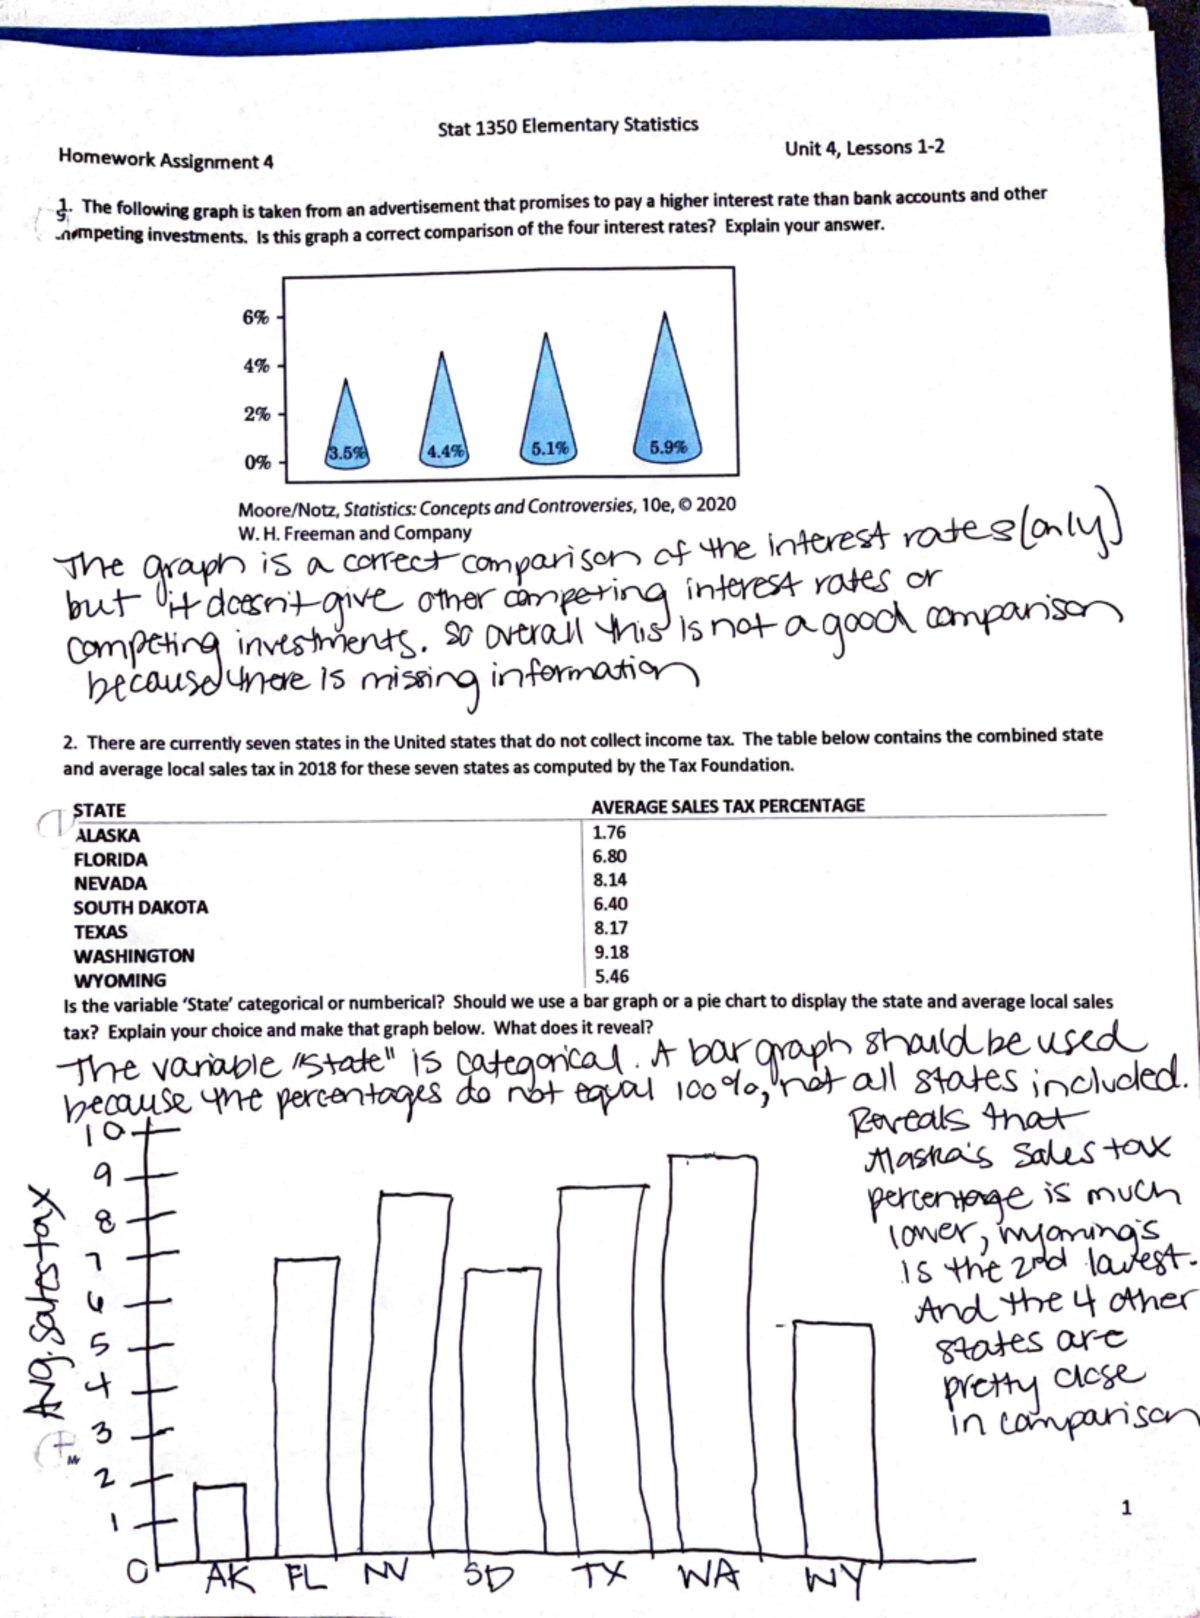 Stat 1350 Elementary Statistics
Homework Assignment 4
Unit 4, Lessons 1-2
1. The following graph is taken from an advertisement that promises to pay a higher interest rate than bank accounts and other
competing investments. Is this graph a correct comparison of the four interest rates? Explain your answer.
6%
4%
2%
0%
3.5%
4.4%
5.1%
5.9%
Moore/Notz, Statistics: Concepts and Controversies, 10e, © 2020
W. H. Freeman and Company
The graph is a correct comparison of the interest rates (only)
but it doesn't give other competing interest rates or
competing investments. So overall this is not a good comparison
because there is missing information
2. There are currently seven states in the United states that do not collect income tax. The table below contains the combined state
and average local sales tax in 2018 for these seven states as computed by the Tax Foundation.
STATE AVERAGE SALES TAX PERCENTAGE
ALASKA 1.76
FLORIDA 6.80
NEVADA 8.14
SOUTH DAKOTA 6.40
TEXAS 8.17
WASHINGTON 9.18
WYOMING 5.46
Is the variable 'State' categorical or numberical? Should we use a bar graph or a pie chart to display the state and average local sales
tax? Explain your choice and make that graph below. What does it reveal?
The variable "State" is categorical. A bar graph should be used
because the percentages do not equal 100%, not all states included.
Reveals that
Alaska's sales tax
percentage is much
lower, wyoming's
is the 2nd lowest.
And the 4 other
states are
pretty close
in comparison
Avg. Sales tax
10
9
8
7
6
5
4
3
2
1
0
AK FL NV SD TX WA WY
1